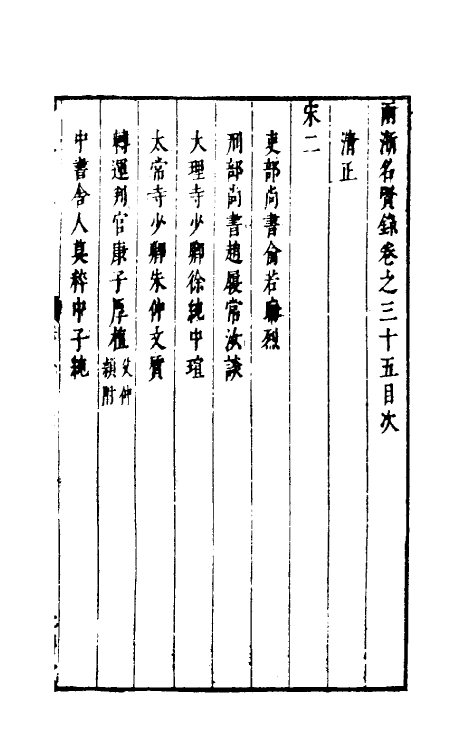 兩浙名賢錄卷之三十五目次
清正
宋二
吏部尚書俞若晦烈
刑部尚書趙履常汝談
大理寺少卿徐純中瑄
太常寺少卿朱仲文質
轉運判官康子厚植父仲頴附
中書舍人莫粹中子純